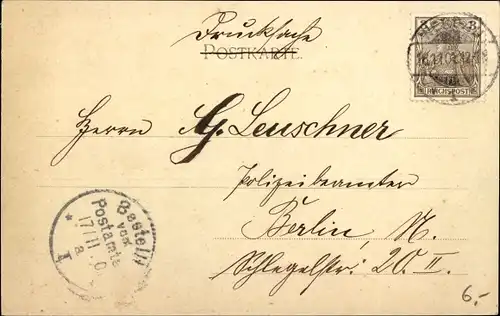 Drucksache
POSTKARTE.
3 3
REICHSPOST
Herrn G. Leuschner
Polizeibeamter
Berlin, N.
Schlegelstr. 20. II.
Bestellt
vom
Postamte
17/11.0
a.
* I
6.-